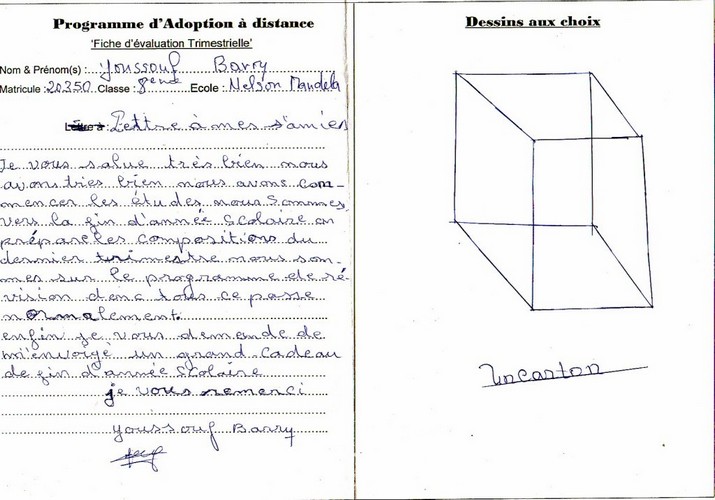 Programme d'Adoption à distance
'Fiche d'évaluation Trimestrielle'
Nom & Prénom(s) : Youssouf Barry
Matricule : 20350 Classe : 8eme Ecole : Nelson Mandela
Lettre à mes s'amies
Je vous salue trés bien nous
avons tries bien nous avons com-
mencer les études nous sommes
vers la fin d'année scolaire on
prépare les compositions du
dernier trimestre nous som-
mes sur le programme de ré-
vision donc tous ce passe
normalement.
enfin je vous demande de
m'envoyé un grand cadeau
de fin d'année scolaire
je vous remerci
Youssouf Barry
Dessins aux choix
Un carton